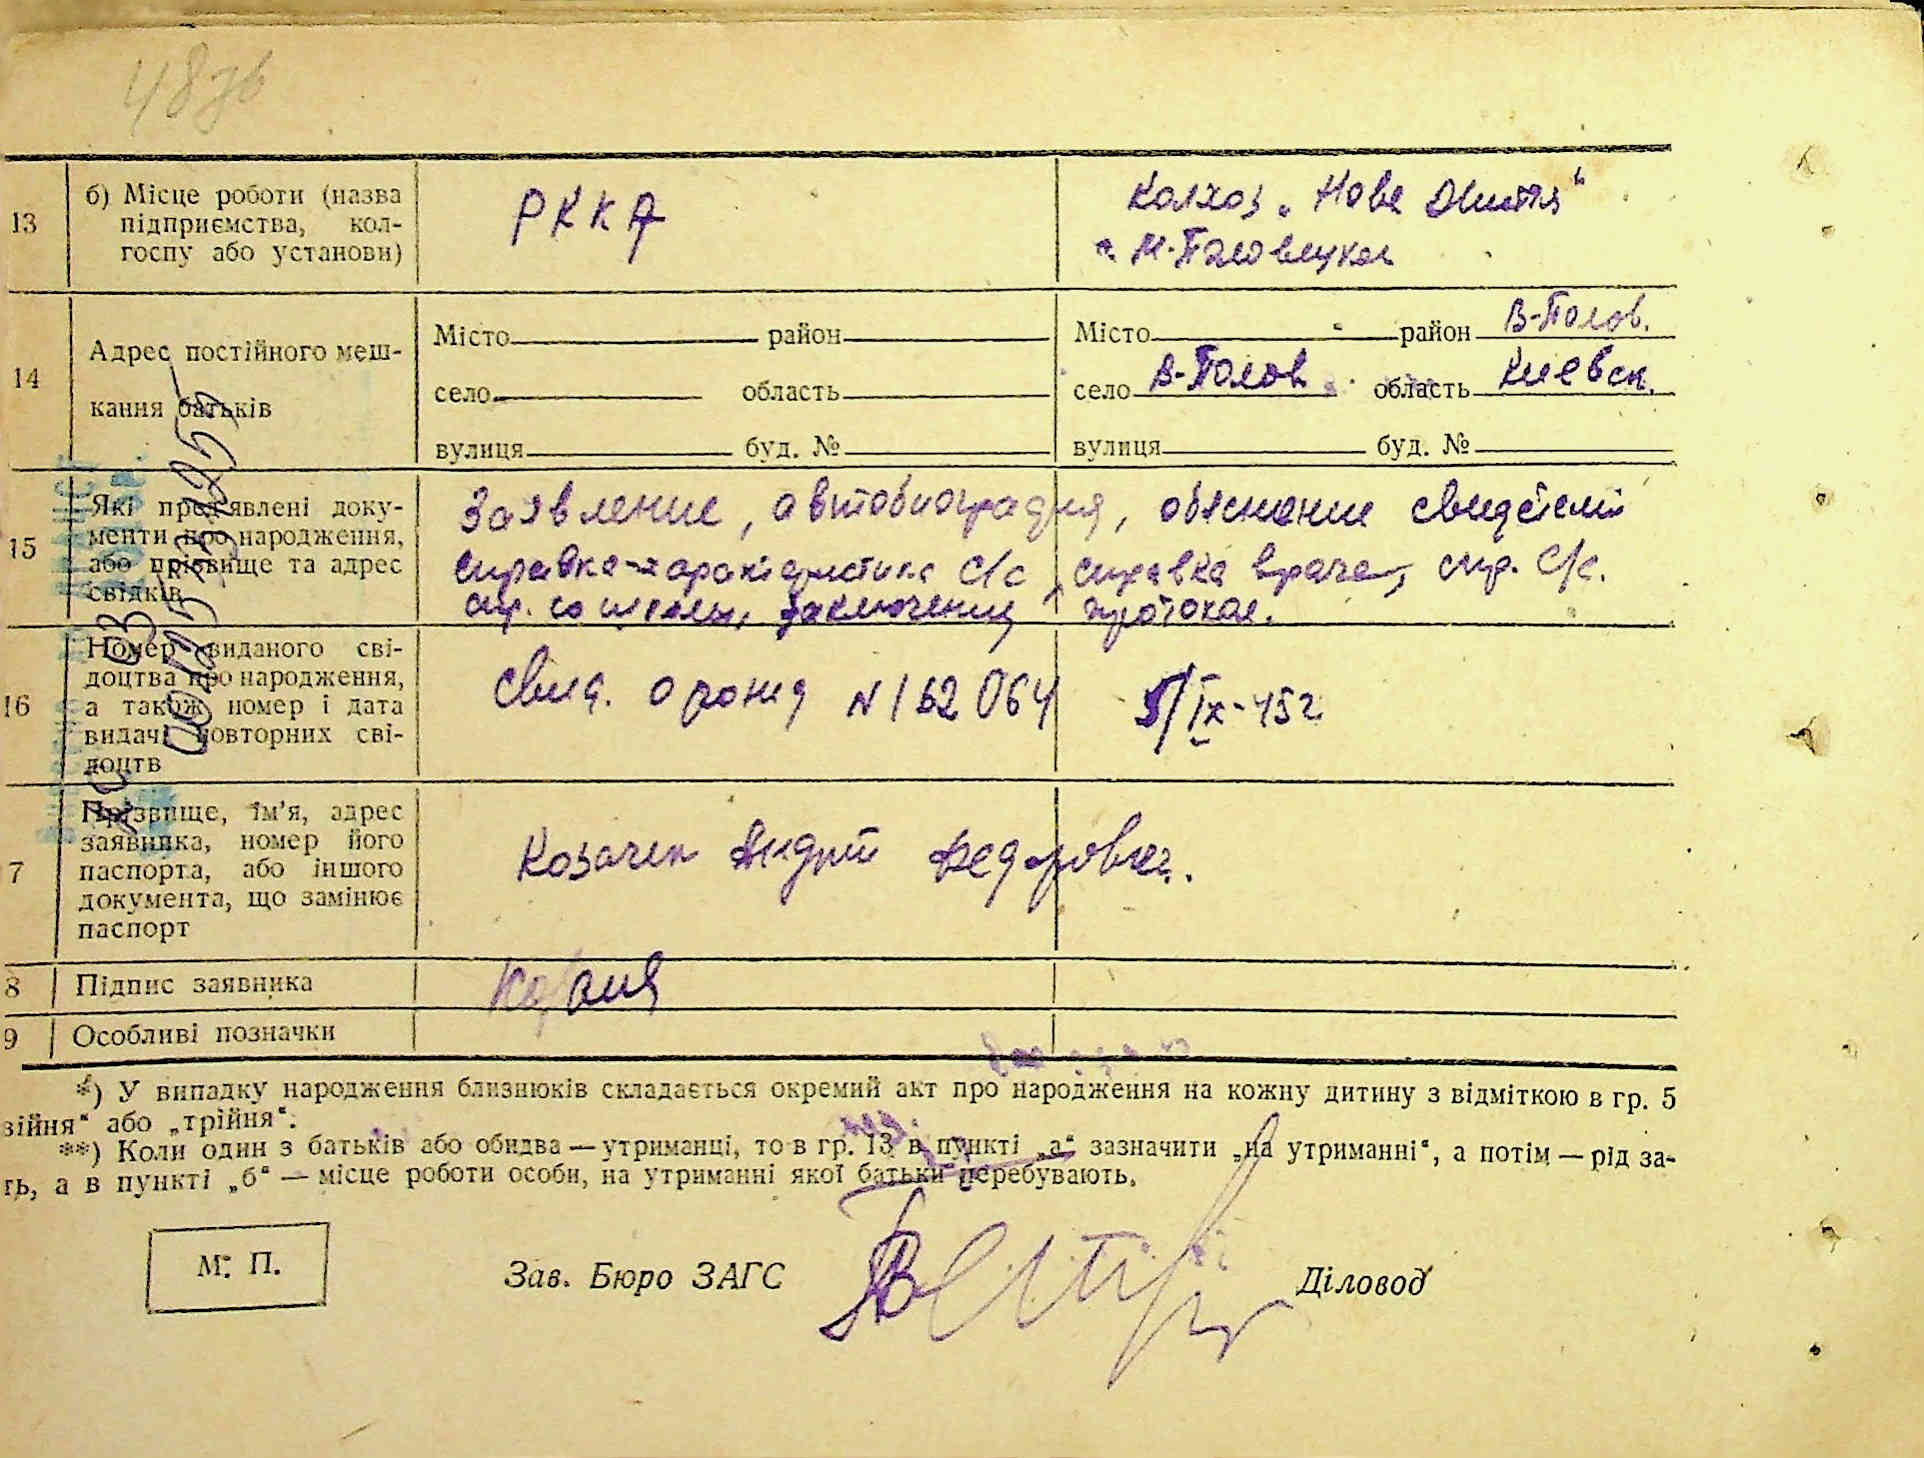 48зв
13
б) Місце роботи (назва
підприємства, кол-
госпу або установи)
РККА
Колхоз „Нове Життя“
с. М-Половецкое
14
Адрес постійного меш-
кання батьків
Місто район
село область
вулиця буд. №
Місто район В-Полов.
село В-Полов область Киевск.
вулиця буд. №
15
Які пред'явлені доку-
менти про народження,
або прізвище та адрес
свідків
Заявление, автобиография, обяснение свидетелей
справка-характеристика С/с, справка врача, спр. С/с.
спр. со школы, заключение, протокол.
16
Номер виданого сві-
доцтва про народження,
а також номер і дата
видачі повторних сві-
доцтв
Свид. о рожд N 162064 5/IX-45г
7
Прізвище, ім'я, адрес
заявника, номер його
паспорта, або іншого
документа, що замінює
паспорт
Козачек Андрей Федорович.
8
Підпис заявника
9
Особливі позначки
*) У випадку народження близнюків складається окремий акт про народження на кожну дитину з відміткою в гр. 5
війня“ або „трійня“.
**) Коли один з батьків або обидва — утриманці, то в гр. 13 в пункті „а“ зазначити „на утриманні“, а потім — рід за-
ть, а в пункті „б“ — місце роботи особи, на утриманні якої батьки перебувають.
М. П.
Зав. Бюро ЗАГС
Діловод